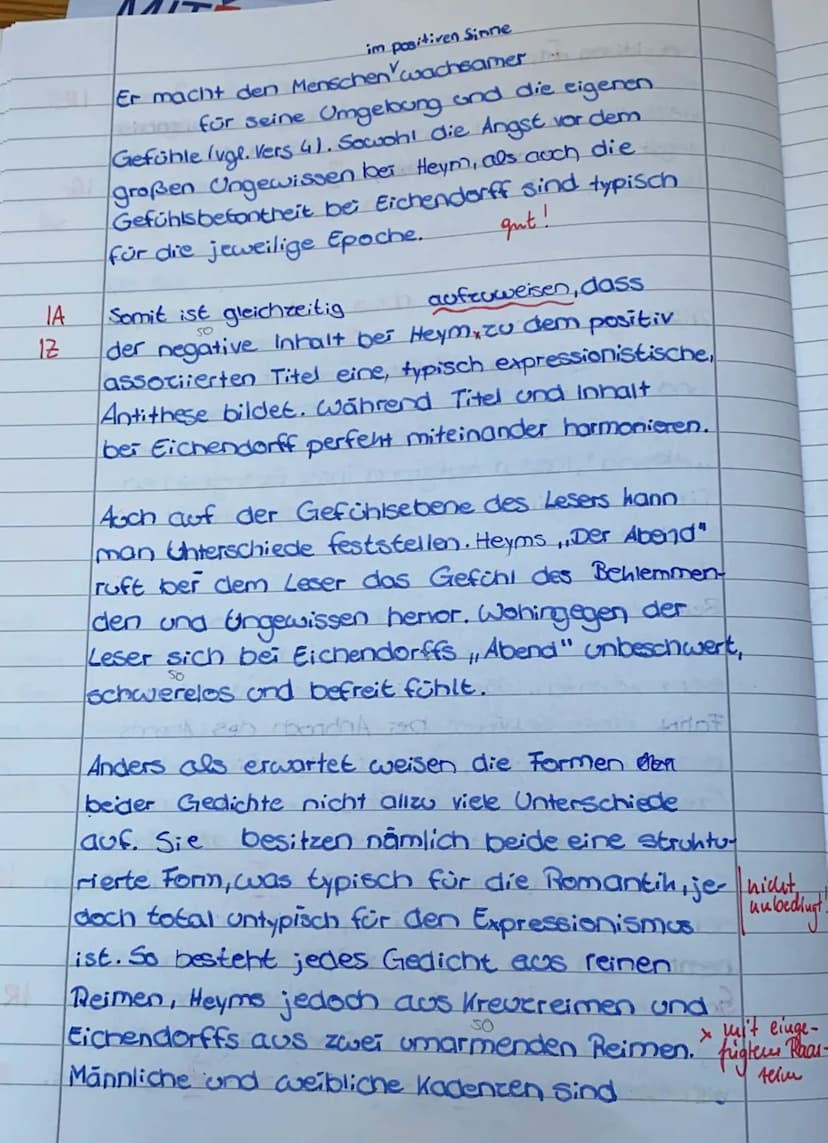 im positiven Sinne
Er macht den Menschen wachsamer
für seine Umgebung und die eigenen
Gefühle (vgl. Vers 4). Sowohl die Angst vor dem
großen Ungewissen bei Heym, als auch die
Gefühlsbetontheit bei Eichendorff sind typisch
für die jeweilige Epoche.
gut!
1A Somit ist gleichzeitig aufzuweisen, dass
1Z der negative Inhalt bei Heym, zu dem positiv
assoziierten Titel eine, typisch expressionistische,
Antithese bildet. Während Titel und Inhalt
bei Eichendorff perfekt miteinander harmonieren.
Auch auf der Gefühlsebene des Lesers kann
man Unterschiede feststellen. Heyms „Der Abend"
ruft bei dem Leser das Gefühl des Beklemmen-
den und Ungewissen hervor. Wohingegen der
Leser sich bei Eichendorffs „Abend" unbeschwert,
50
schwerelos und befreit fühlt.
Anders als erwartet weisen die Formen
beider Gedichte nicht allzu viele Unterschiede
auf. Sie besitzen nämlich beide eine struktu-
rierte Form, was typisch für die Romantik, je-
doch total untypisch für den Expressionismus
nicht
unbedingt!
ist. So besteht jedes Gedicht aus reinen
Reimen, Heyms jedoch aus Kreuzreimen und
50
Eichendorffs aus zwei umarmenden Reimen.
x mit einge-
fügtem Paar-
reim
Männliche und weibliche Kadenzen sind